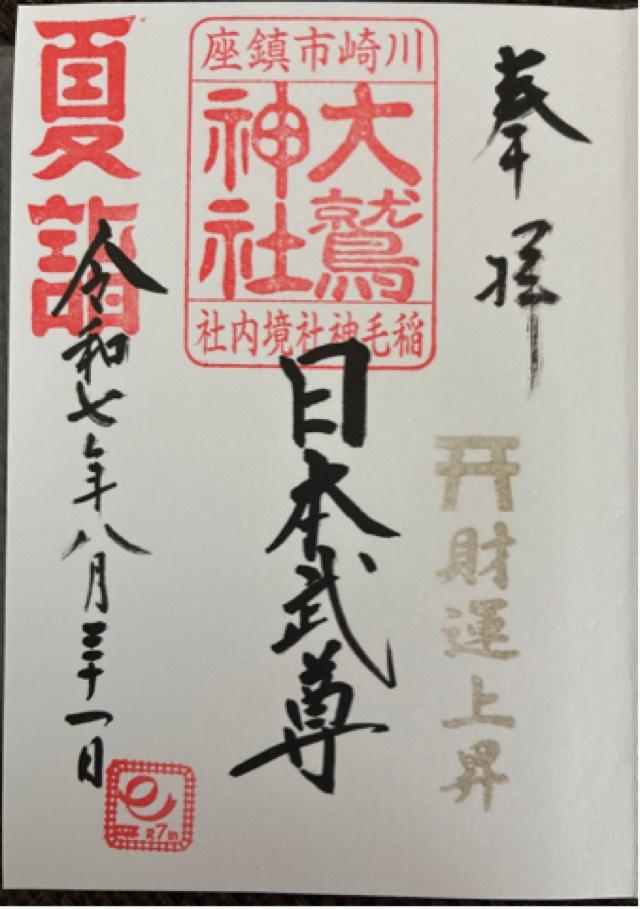 奉拝
財運上昇
川崎市鎮座
大鷲
神社
稲毛神社境内社
日本武尊
夏詣
令和七年八月三十一日